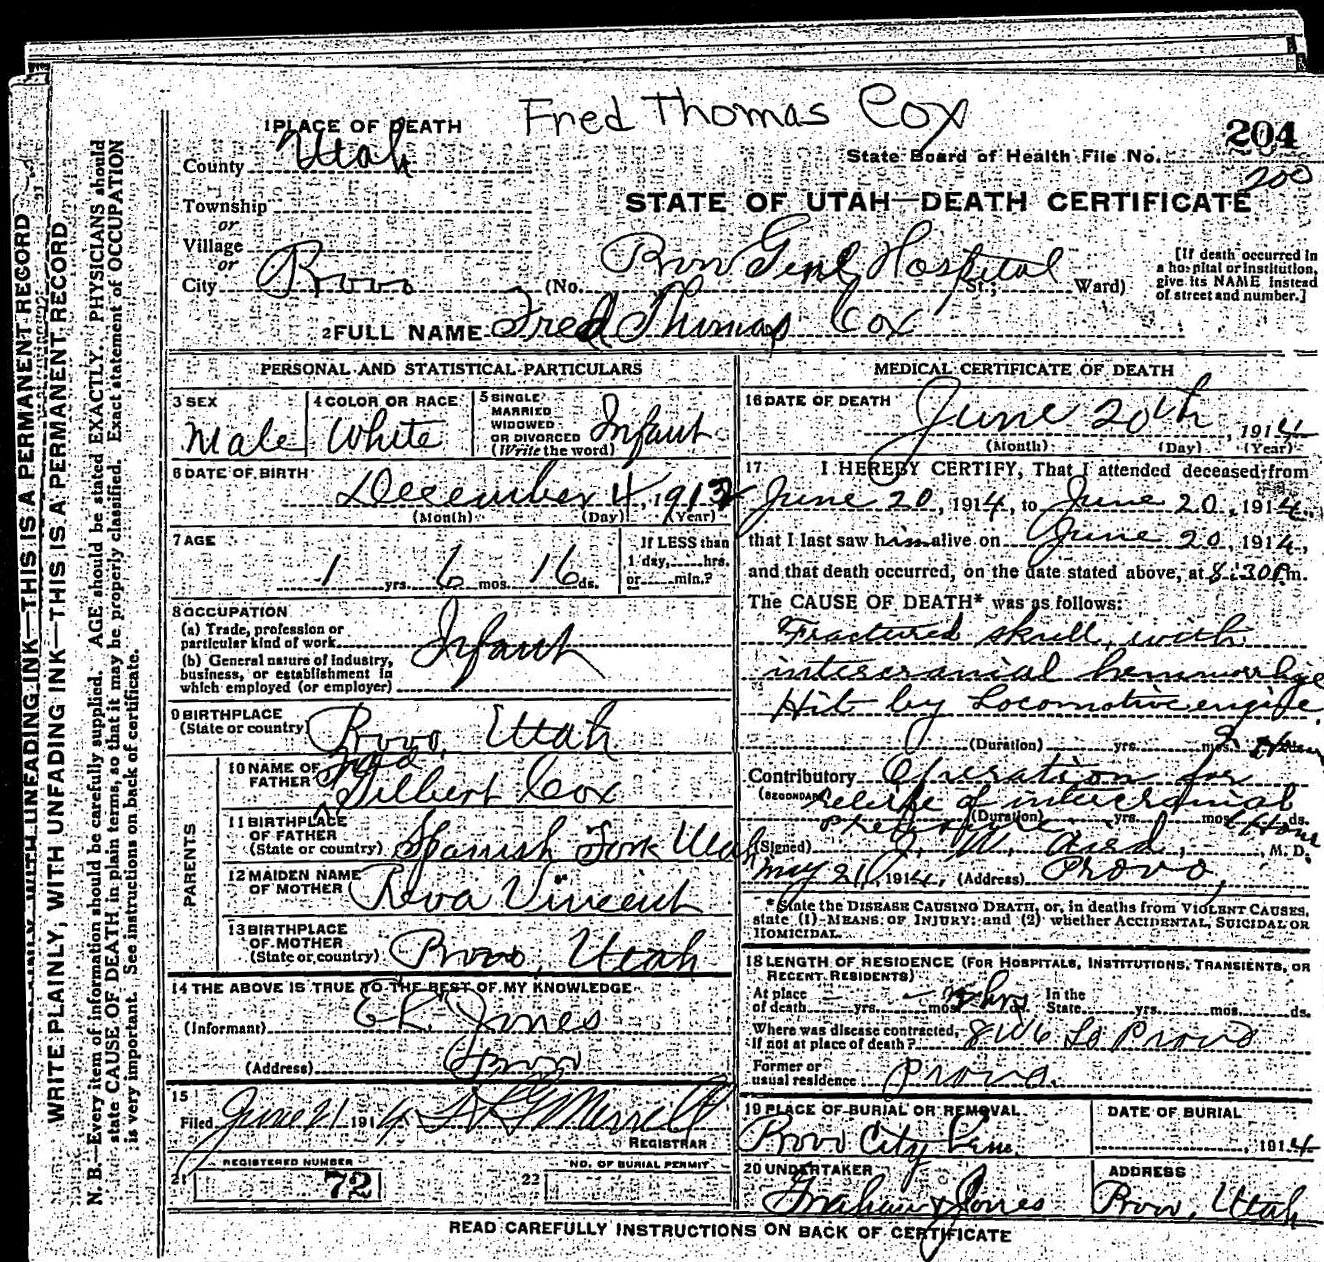 Fred Thomas Cox
1 PLACE OF DEATH
204
County Utah
State Board of Health File No.
200
Township
STATE OF UTAH—DEATH CERTIFICATE
or
Village
or
City Provo (No. Prov Genl Hospital St.; Ward)
[If death occurred in
a hospital or institution,
give its NAME instead
of street and number.]
2 FULL NAME Fred Thomas Cox
PERSONAL AND STATISTICAL PARTICULARS
3 SEX
Male
4 COLOR OR RACE
White
5 SINGLE
MARRIED
WIDOWED
OR DIVORCED
(Write the word)
Infant
6 DATE OF BIRTH
December 4, 1912
(Month) (Day) (Year)
7 AGE
1 yrs. 6 mos. 16 ds.
If LESS than
1 day, hrs.
or min.?
8 OCCUPATION
(a) Trade, profession or
particular kind of work
Infant
(b) General nature of industry,
business, or establishment in
which employed (or employer)
9 BIRTHPLACE
(State or country) Provo, Utah
PARENTS
10 NAME OF
FATHER Fred
Gilbert Cox
11 BIRTHPLACE
OF FATHER
(State or country) Spanish Fork Utah
12 MAIDEN NAME
OF MOTHER Reva Vincent
13 BIRTHPLACE
OF MOTHER
(State or country) Provo, Utah
14 THE ABOVE IS TRUE TO THE BEST OF MY KNOWLEDGE
(Informant) E R Jones
(Address) Provo
15
Filed June 21 1914 Merrell
REGISTRAR
REGISTERED NUMBER
21 72
NO. OF BURIAL PERMIT
22
MEDICAL CERTIFICATE OF DEATH
16 DATE OF DEATH June 20th, 1914
(Month) (Day) (Year)
17 I HEREBY CERTIFY, That I attended deceased from
June 20, 1914, to June 20, 1914,
that I last saw him alive on June 20, 1914,
and that death occurred, on the date stated above, at 8:30 P.m.
The CAUSE OF DEATH* was as follows:
Fractured skull, with
intercranial hemorrhige
Hit by Locomotive engine.
(Duration) yrs. mos.
Contributory Operation for
(SECONDARY) releife of intercranial
(Duration) yrs. mos. ds.
(Signed) J. W. Aird, M. D.
May 21, 1914, (Address) Provo,
*State the DISEASE CAUSING DEATH, or, in deaths from VIOLENT CAUSES,
state (1) MEANS OF INJURY; and (2) whether ACCIDENTAL, SUICIDAL OR
HOMICIDAL.
18 LENGTH OF RESIDENCE (FOR HOSPITALS, INSTITUTIONS, TRANSIENTS, OR
RECENT RESIDENTS)
At place
of death yrs. mos. hrs
In the
State yrs. mos. ds.
Where was disease contracted,
If not at place of death? 8 W 6 So Provo
Former or
usual residence Provo.
19 PLACE OF BURIAL OR REMOVAL
Provo City Cem.
DATE OF BURIAL
, 1914
20 UNDERTAKER
Graham & Jones
ADDRESS
Provo, Utah
READ CAREFULLY INSTRUCTIONS ON BACK OF CERTIFICATE
WRITE PLAINLY, WITH UNFADING INK—THIS IS A PERMANENT RECORD
WRITE PLAINLY, WITH UNFADING INK—THIS IS A PERMANENT RECORD
N. B.—Every item of information should be carefully supplied. AGE should be stated EXACTLY. PHYSICIANS should
state CAUSE OF DEATH in plain terms, so that it may be properly classified. Exact statement of OCCUPATION
is very important. See instructions on back of certificate.